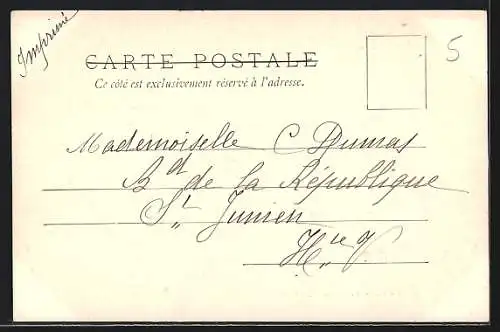 Imprimé
5
CARTE POSTALE
Ce côté est exclusivement réservé à l'adresse.
Mademoiselle C Dumas
Bd de la République
St Junien
Hte V.